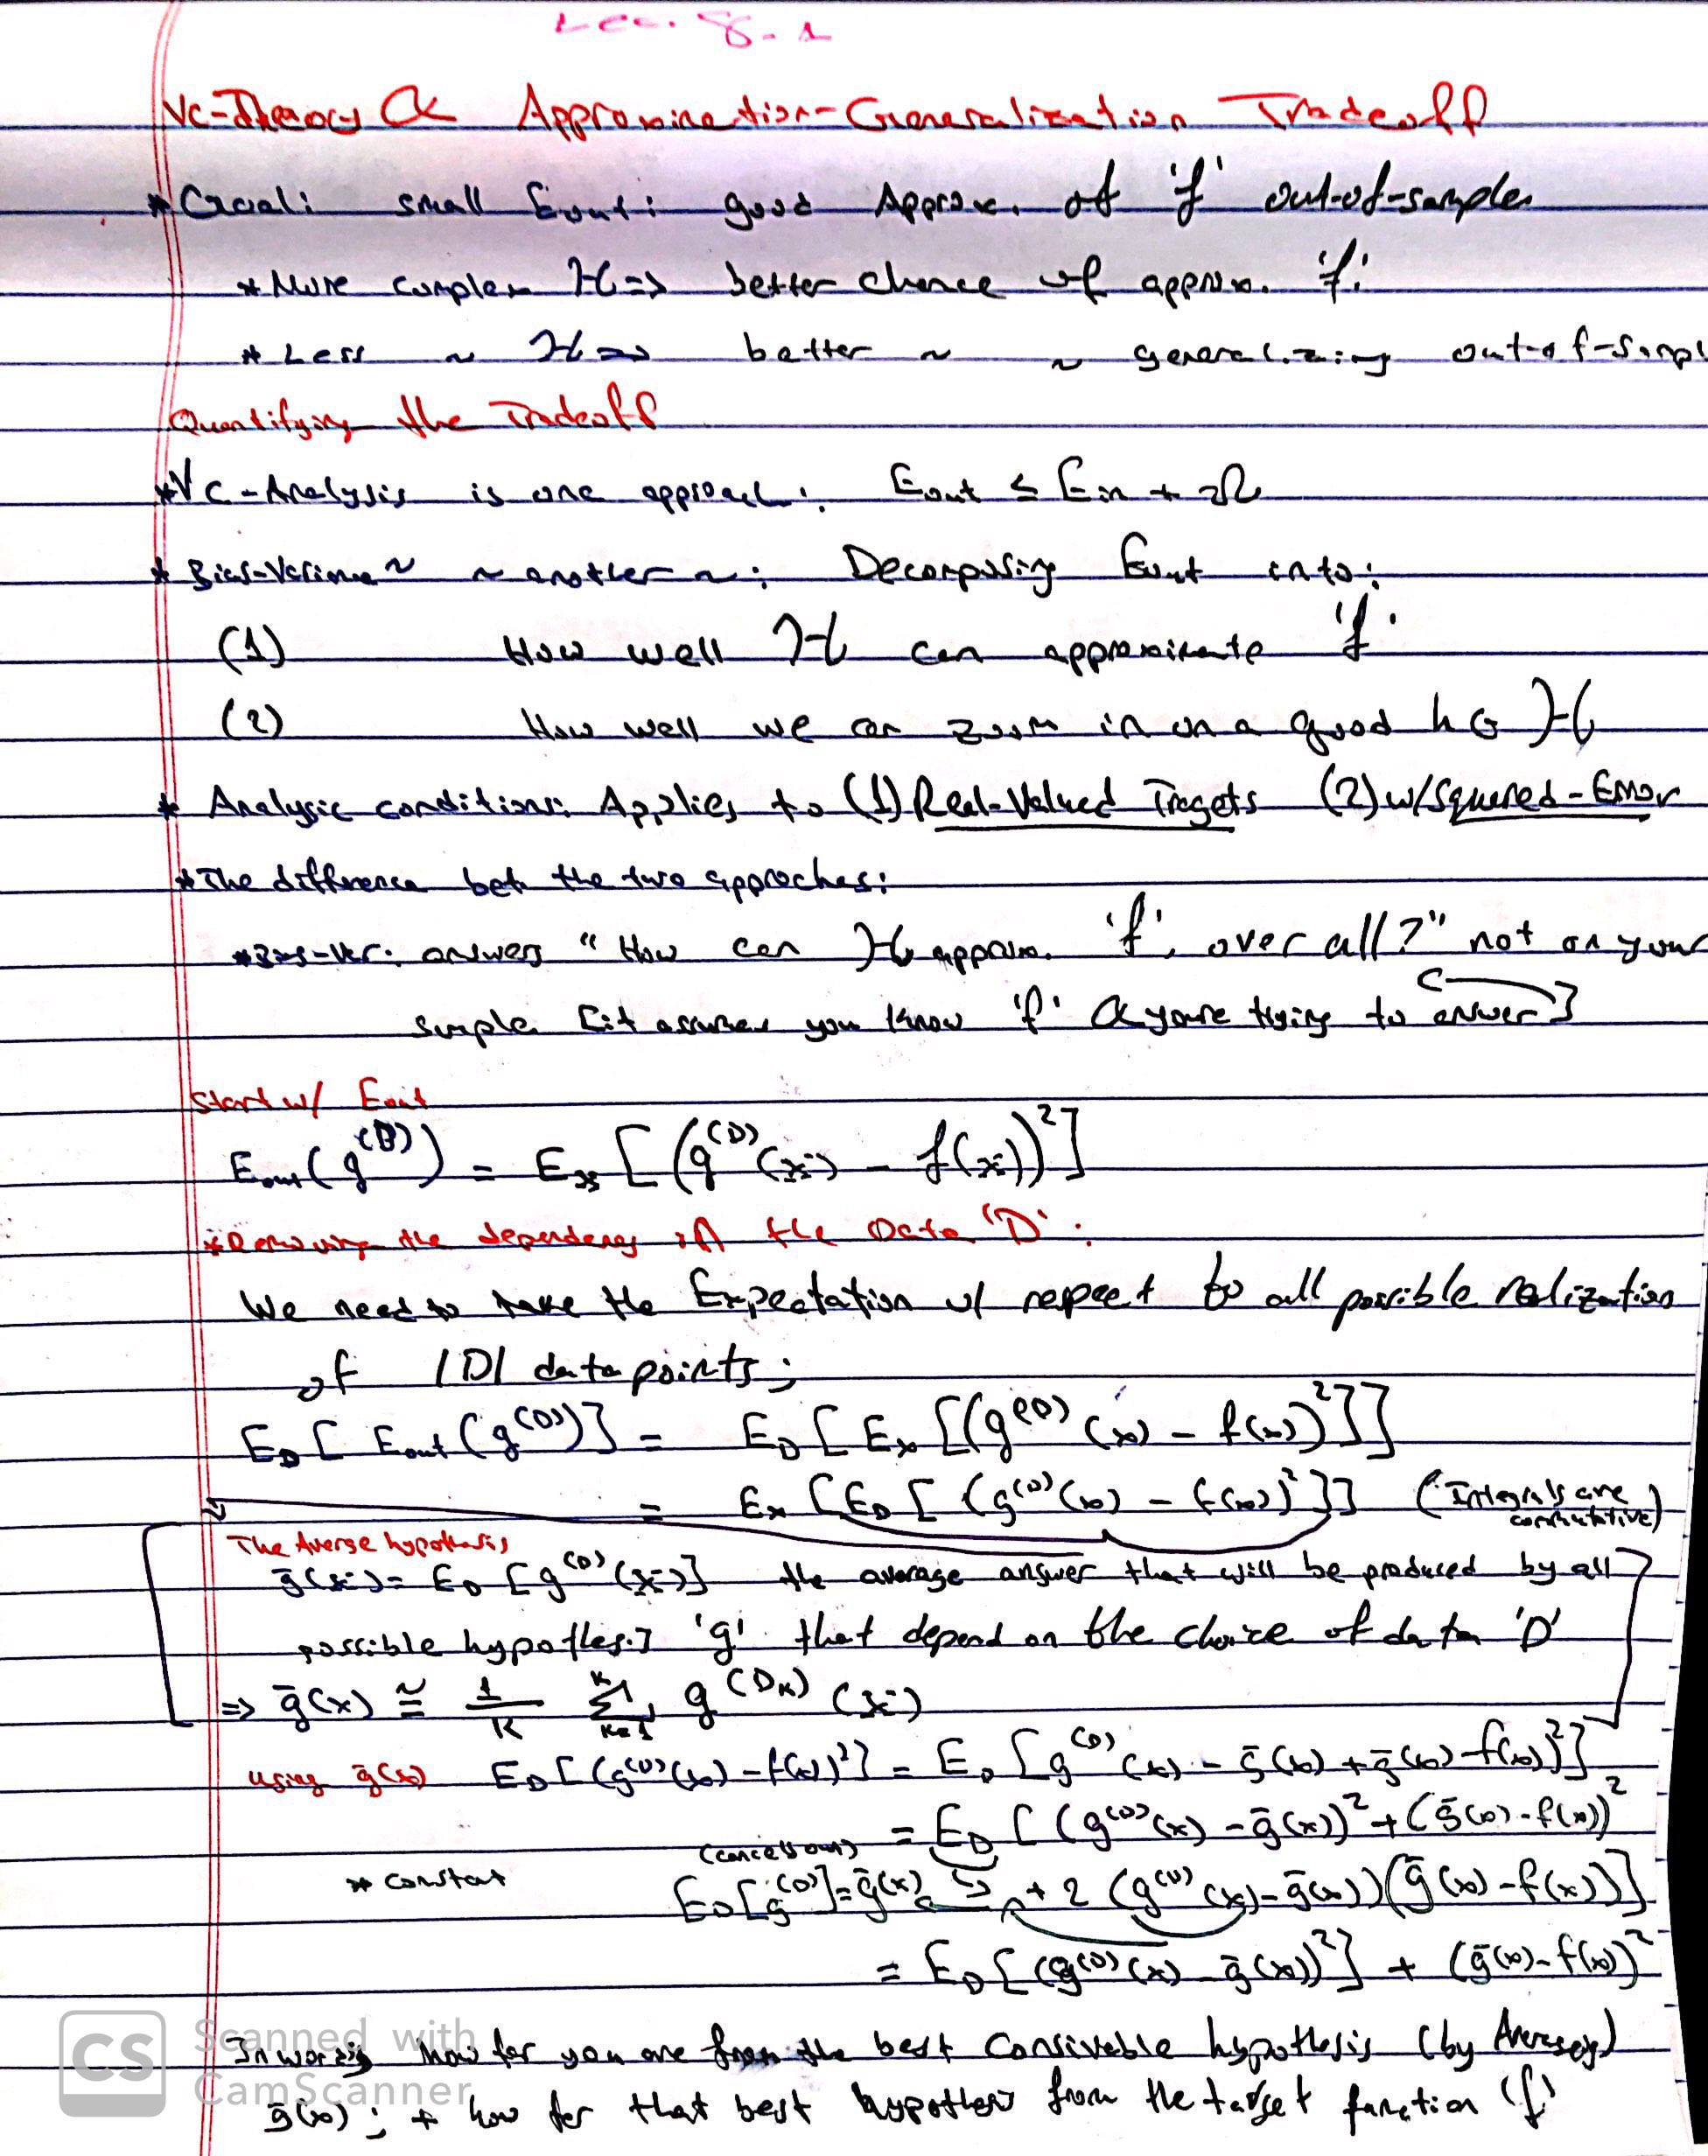 Lec. 8-1
VC-Theory & Approximation-Generalization Tradeoff
* Goal: small Eout: good Approx. of 'f' out-of-sample
* More complex H => better chance of approx. 'f'
* Less ~ H => better ~ ~ generalizing out-of-sampl
Quantifying the Tradeoff
* VC-Analysis is one approach: Eout ≤ Ein + Ω
* Bias-Variance ~ ~ another ~: Decomposing Eout into:
(1) How well H can approximate 'f'
(2) How well we can zoom in on a good h ∈ H
* Analysis conditions: Applies to (1) Real-Valued Tragets (2) w/ Squared-Error
* The difference bet the two approches:
* Bias-Var: answers "How can H approx. 'f' over all?" not on your
sample [it assumes you know 'f' & youre trying to answer]
Start w/ Eout
Eout(g^(D)) = Ex[(g^(D)(x) - f(x))²]
* Removing the dependency on the Data 'D':
We need to take the Expectation w/ respect to all possible realization
of |D| data points;
E_D[Eout(g^(D))] = E_D[Ex[(g^(D)(x) - f(x))²]]
= Ex[E_D[(g^(D)(x) - f(x))²]] (Integrals are commutative)
The Averge hypothesis
ḡ(x) = E_D[g^(D)(x)] the average answer that will be produced by all
possible hypothesis 'g' that depend on the choice of data 'D'
=> ḡ(x) ≅ 1/K Σ_{k=1}^{K} g^(D_k)(x)
using ḡ(x) E_D[(g^(D)(x) - f(x))²] = E_D[g^(D)(x) - ḡ(x) + ḡ(x) - f(x))²]
= E_D[(g^(D)(x) - ḡ(x))² + (ḡ(x) - f(x))²
(cancels out)
* constant E_D[g^(D)] = ḡ(x) + 2 (g^(D)(x) - ḡ(x))(ḡ(x) - f(x))]
= E_D[(g^(D)(x) - ḡ(x))²] + (ḡ(x) - f(x))²
how far you are from the best Consivable hypothesis (by Averages)
ḡ(x); + how far that best hypothesis from the target function 'f'
CS Scanned with
CamScanner